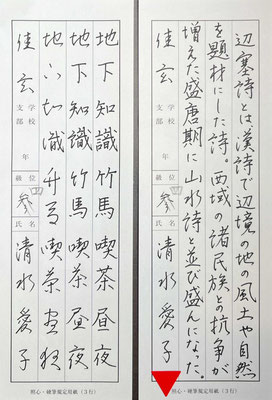 辺塞詩とは漢詩で辺境の地の風土や自然
を題材にした詩。西域の諸民族との抗争が
増えた盛唐期に山水詩と並び盛んになった。
佳玄
支部
学校
年
級位
参四
氏名
清水愛子
照心・硬筆規定用紙(3行)
地下知識竹馬喫茶昼夜
地下知識竹馬喫茶昼夜
地下知識竹馬喫茶昼夜
佳玄
支部
学校
年
級位
参四
氏名
清水愛子
照心・硬筆規定用紙(3行)